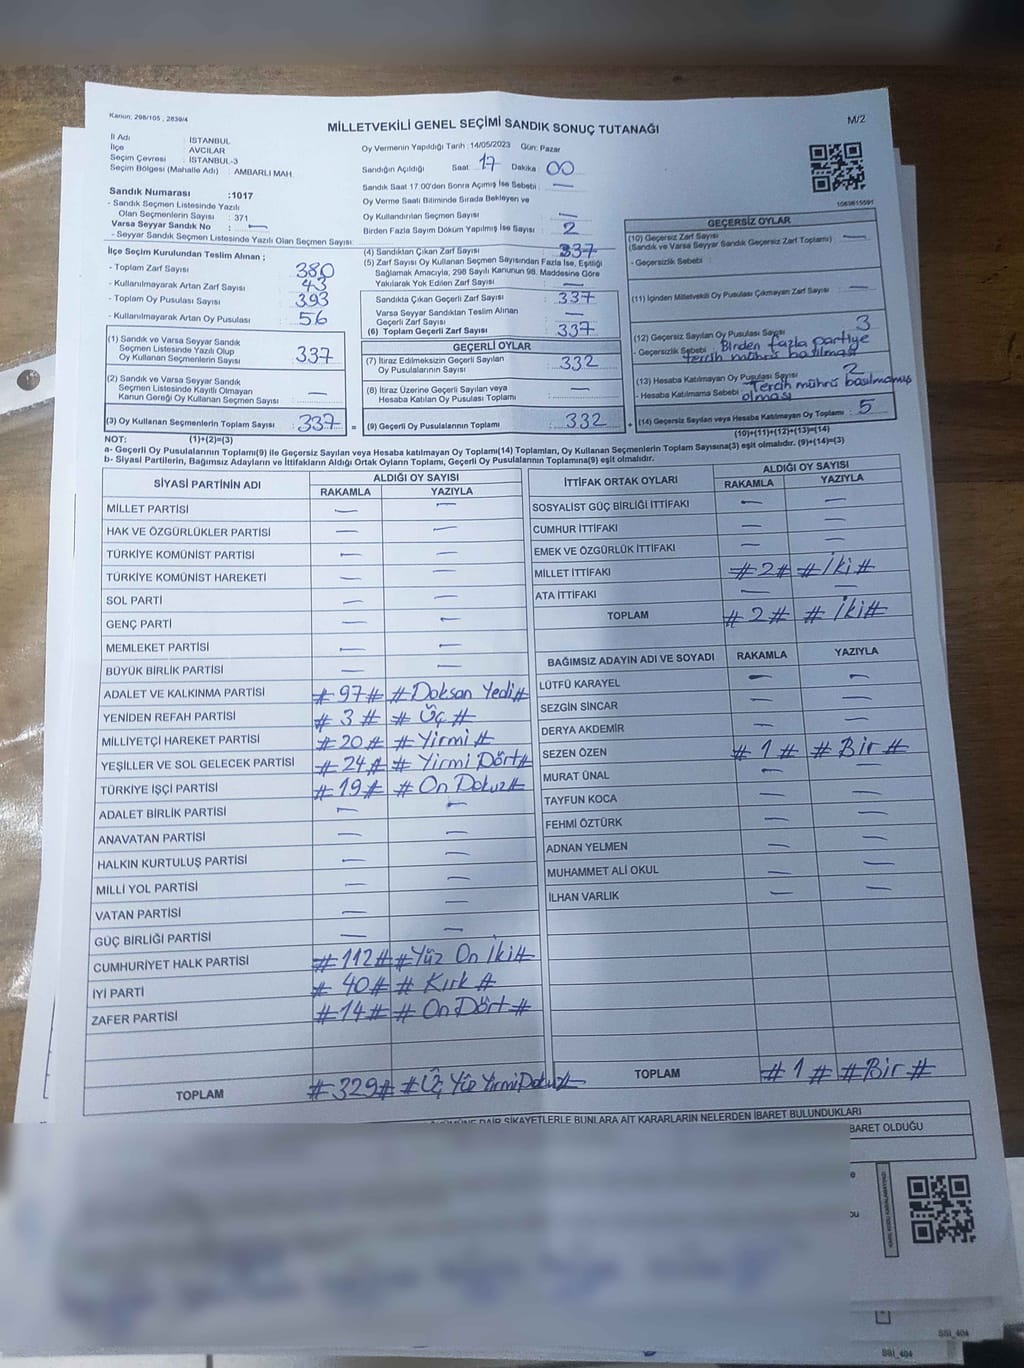 Kanun: 298/105 , 2839/4
MİLLETVEKİLİ GENEL SEÇİMİ SANDIK SONUÇ TUTANAĞI
M/2
İl Adı : İSTANBUL
İlçe : AVCILAR
Seçim Çevresi : İSTANBUL-3
Seçim Bölgesi (Mahalle Adı) : AMBARLI MAH.
Sandık Numarası :1017
- Sandık Seçmen Listesinde Yazılı
Olan Seçmenlerin Sayısı : 371
Varsa Seyyar Sandık No : —
- Seyyar Sandık Seçmen Listesinde Yazılı Olan Seçmen Sayısı:
Oy Vermenin Yapıldığı Tarih :14/05/2023 Gün: Pazar
Sandığın Açıldığı Saat: 17 Dakika: 00
Sandık Saat 17.00'den Sonra Açılmış İse Sebebi : —
Oy Verme Saati Bitiminde Sırada Bekleyen ve
Oy Kullandırılan Seçmen Sayısı : —
Birden Fazla Sayım Döküm Yapılmış İse Sayısı : 2
1063615591
İlçe Seçim Kurulundan Teslim Alınan ;
- Toplam Zarf Sayısı : 380
- Kullanılmayarak Artan Zarf Sayısı : 43
- Toplam Oy Pusulası Sayısı : 393
- Kullanılmayarak Artan Oy Pusulası : 56
(1) Sandık ve Varsa Seyyar Sandık
Seçmen Listesinde Yazılı Olup
Oy Kullanan Seçmenlerin Sayısı : 337
(2) Sandık ve Varsa Seyyar Sandık
Seçmen Listesinde Kayıtlı Olmayan
Kanun Gereği Oy Kullanan Seçmen Sayısı : —
(3) Oy Kullanan Seçmenlerin Toplam Sayısı : 337
(1)+(2)=(3)
(4) Sandıktan Çıkan Zarf Sayısı : 337
(5) Zarf Sayısı Oy Kullanan Seçmen Sayısından Fazla İse, Eşitliği
Sağlamak Amacıyla, 298 Sayılı Kanunun 98. Maddesine Göre
Yakılarak Yok Edilen Zarf Sayısı : —
Sandıkta Çıkan Geçerli Zarf Sayısı : 337
Varsa Seyyar Sandıktan Teslim Alınan
Geçerli Zarf Sayısı : —
(6) Toplam Geçerli Zarf Sayısı : 337
GEÇERLİ OYLAR
(7) İtiraz Edilmeksizin Geçerli Sayılan
Oy Pusulalarının Sayısı : 332
(8) İtiraz Üzerine Geçerli Sayılan veya
Hesaba Katılan Oy Pusulası Toplamı : —
= (9) Geçerli Oy Pusulalarının Toplamı : 332
GEÇERSİZ OYLAR
(10) Geçersiz Zarf Sayısı : —
(Sandık ve Varsa Seyyar Sandık Geçersiz Zarf Toplamı)
- Geçersizlik Sebebi :
(11) İçinden Milletvekili Oy Pusulası Çıkmayan Zarf Sayısı : —
(12) Geçersiz Sayılan Oy Pusulası Sayısı : 3
- Geçersizlik Sebebi : Birden fazla partiye
tercih mührü basılması
(13) Hesaba Katılmayan Oy Pusulası Sayısı : 2
- Hesaba Katılmama Sebebi : Tercih mührü basılmamış
olması
+ (14) Geçersiz Sayılan veya Hesaba Katılmayan Oy Toplamı : 5
(10)+(11)+(12)+(13)=(14)
NOT:
a- Geçerli Oy Pusulalarının Toplamı(9) ile Geçersiz Sayılan veya Hesaba katılmayan Oy Toplamı(14) Toplamları, Oy Kullanan Seçmenlerin Toplam Sayısına(3) eşit olmalıdır. (9)+(14)=(3)
b- Siyasi Partilerin, Bağımsız Adayların ve İttifakların Aldığı Ortak Oyların Toplamı, Geçerli Oy Pusulalarının Toplamına(9) eşit olmalıdır.
SİYASİ PARTİNİN ADI ALDIĞI OY SAYISI
RAKAMLA YAZIYLA
MİLLET PARTİSİ — —
HAK VE ÖZGÜRLÜKLER PARTİSİ — —
TÜRKİYE KOMÜNİST PARTİSİ — —
TÜRKİYE KOMÜNİST HAREKETİ — —
SOL PARTİ — —
GENÇ PARTİ — —
MEMLEKET PARTİSİ — —
BÜYÜK BİRLİK PARTİSİ — —
ADALET VE KALKINMA PARTİSİ #97# #Doksan Yedi#
YENİDEN REFAH PARTİSİ #3# #Üç#
MİLLİYETÇİ HAREKET PARTİSİ #20# #Yirmi#
YEŞİLLER VE SOL GELECEK PARTİSİ #24# #Yirmi Dört#
TÜRKİYE İŞÇİ PARTİSİ #19# #On Dokuz#
ADALET BİRLİK PARTİSİ — —
ANAVATAN PARTİSİ — —
HALKIN KURTULUŞ PARTİSİ — —
MİLLİ YOL PARTİSİ — —
VATAN PARTİSİ — —
GÜÇ BİRLİĞİ PARTİSİ — —
CUMHURİYET HALK PARTİSİ #112# #Yüz On İki#
İYİ PARTİ #40# #Kırk#
ZAFER PARTİSİ #14# #On Dört#
TOPLAM #329# #Üç Yüz Yirmi Dokuz#
İTTİFAK ORTAK OYLARI ALDIĞI OY SAYISI
RAKAMLA YAZIYLA
SOSYALİST GÜÇ BİRLİĞİ İTTİFAKI — —
CUMHUR İTTİFAKI — —
EMEK VE ÖZGÜRLÜK İTTİFAKI — —
MİLLET İTTİFAKI #2# #İki#
ATA İTTİFAKI — —
TOPLAM #2# #İki#
BAĞIMSIZ ADAYIN ADI VE SOYADI RAKAMLA YAZIYLA
LÜTFÜ KARAYEL — —
SEZGİN SİNCAR — —
DERYA AKDEMİR — —
SEZEN ÖZEN #1# #Bir#
MURAT ÜNAL — —
TAYFUN KOCA — —
FEHMİ ÖZTÜRK — —
ADNAN YELMEN — —
MUHAMMET ALİ OKUL — —
İLHAN VARLIK — —
TOPLAM #1# #Bir#
DAİR ŞİKAYETLERLE BUNLARA AİT KARARLARIN NELERDEN İBARET BULUNDUKLARI
BARET OLDUĞU
SSI_404
SSI_404